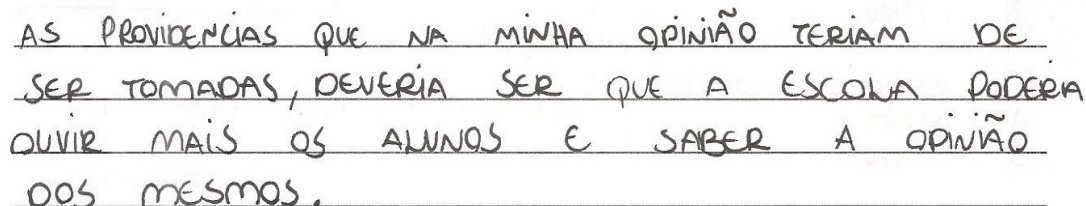 AS PROVIDENCIAS QUE NA MINHA OPINIÃO TERIAM DE
SER TOMADAS, DEVERIA SER QUE A ESCOLA PODERIA
OUVIR MAIS OS ALUNOS E SABER A OPINIÃO
DOS MESMOS.